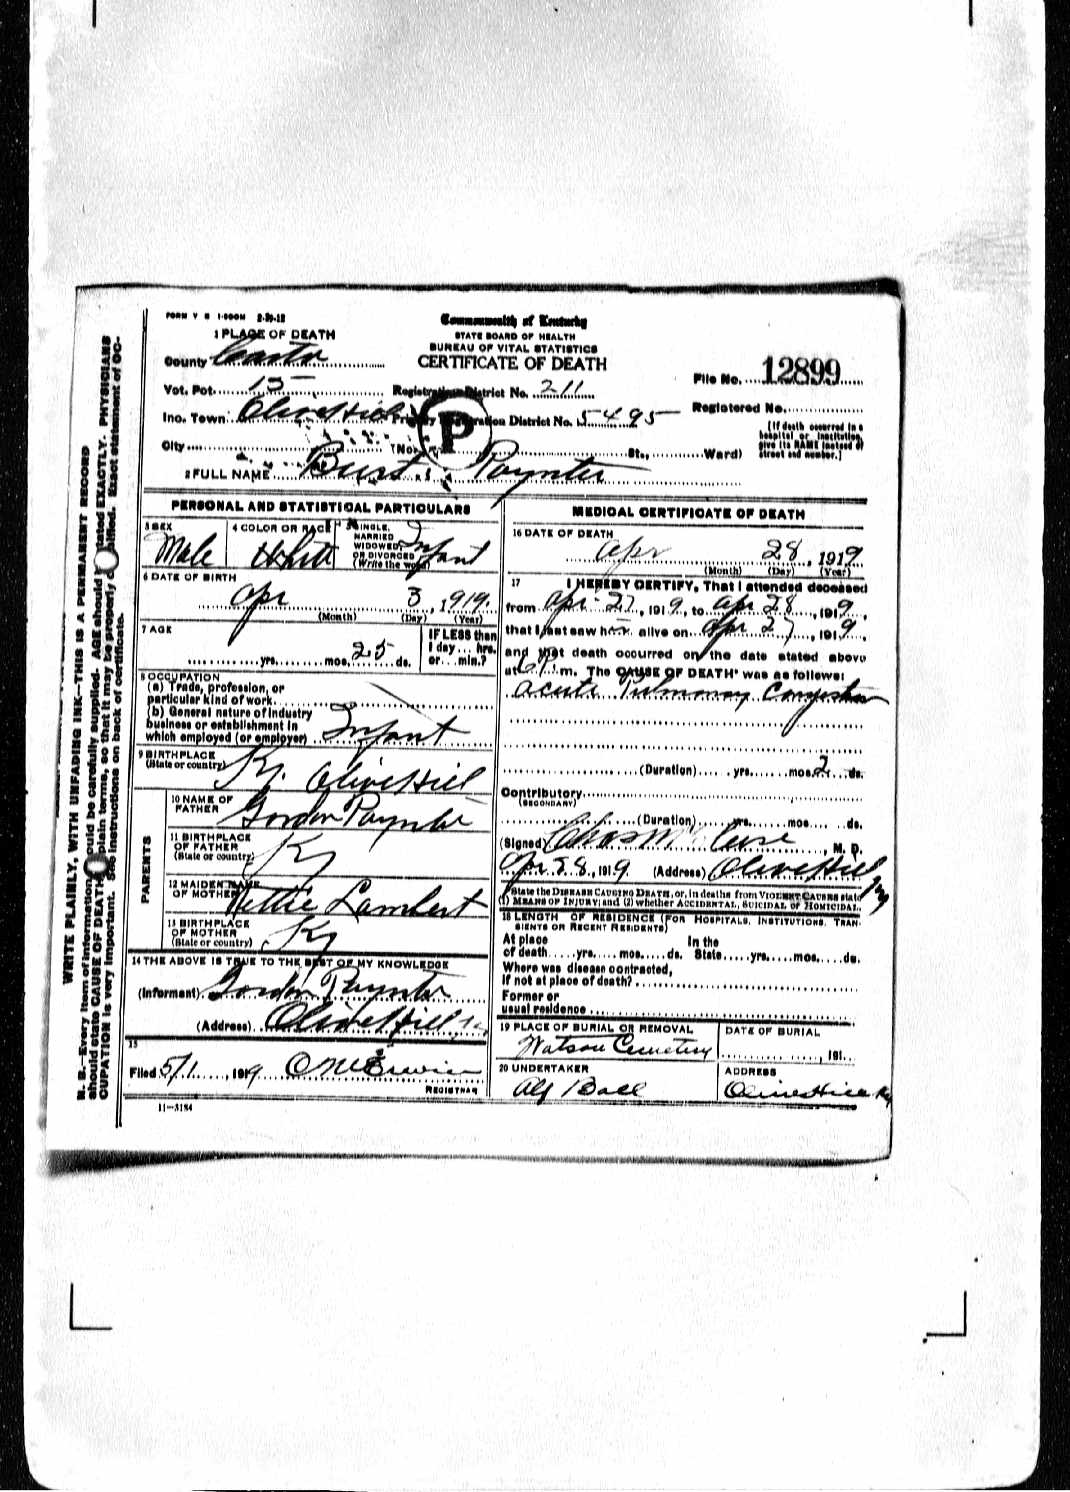 FORM V S 1-500M 2-21-12
Commonwealth of Kentucky
STATE BOARD OF HEALTH
BUREAU OF VITAL STATISTICS
CERTIFICATE OF DEATH
1 PLACE OF DEATH
County Carter
File No. 12899
Vot. Pct. 15 Registration District No. 211
Registered No.
Inc. Town Olive Hill Primary Registration District No. 5495
City (No. St., Ward)
[If death occurred in a hospital or institution, give its NAME instead of street and number.]
P
2 FULL NAME Burt Poynter
PERSONAL AND STATISTICAL PARTICULARS
3 SEX Male
4 COLOR OR RACE White
5 SINGLE, MARRIED WIDOWED, OR DIVORCED (Write the word) Infant
6 DATE OF BIRTH
Apr 3, 1919.
(Month) (Day) (Year)
7 AGE
yrs. mos. 25 ds.
IF LESS than 1 day... hrs. or... min.?
8 OCCUPATION
(a) Trade, profession, or
particular kind of work
(b) General nature of industry
business or establishment in
which employed (or employer) Infant
9 BIRTHPLACE
(State or country) Ky. Olive Hill
PARENTS
10 NAME OF FATHER Gordon Poynter
11 BIRTHPLACE OF FATHER (State or country) Ky
12 MAIDEN NAME OF MOTHER Nettie Lambert
13 BIRTHPLACE OF MOTHER (State or country) Ky
14 THE ABOVE IS TRUE TO THE BEST OF MY KNOWLEDGE
(Informant) Gordon Poynter
(Address) Olive Hill Ky
15
Filed 5/1, 1919
REGISTRAR
11-3184
MEDICAL CERTIFICATE OF DEATH
16 DATE OF DEATH
Apr 28, 1919
(Month) (Day) (Year)
17 I HEREBY CERTIFY, That I attended deceased
from Apr 27, 1919, to Apr 28, 1919,
that I last saw him alive on Apr 27, 1919,
and that death occurred on the date stated above
at 6 P. m. The CAUSE OF DEATH* was as follows:
Acute Pulmonary Congestion
(Duration) yrs. mos. 2 ds.
Contributory
(SECONDARY)
(Duration) yrs. mos. ds.
(Signed) Chas M, M. D.
Apr 28, 1919 (Address) Olive Hill Ky
*State the DISEASE CAUSING DEATH, or, in deaths from VIOLENT CAUSES state
(1) MEANS OF INJURY; and (2) whether ACCIDENTAL, SUICIDAL or HOMICIDAL.
18 LENGTH OF RESIDENCE (FOR HOSPITALS, INSTITUTIONS, TRANSIENTS OR RECENT RESIDENTS)
At place of death yrs. mos. ds. In the State yrs. mos. ds.
Where was disease contracted,
if not at place of death?
Former or
usual residence
19 PLACE OF BURIAL OR REMOVAL
Watson Cemetery
DATE OF BURIAL
, 191
20 UNDERTAKER
Alf Ball
ADDRESS
Olive Hill Ky
WRITE PLAINLY, WITH UNFADING INK—THIS IS A PERMANENT RECORD
N. B.—Every item of information should be carefully supplied. AGE should be stated EXACTLY. PHYSICIANS
should state CAUSE OF DEATH in plain terms, so that it may be properly classified. Exact statement of OC-
CUPATION is very important. See instructions on back of certificate.